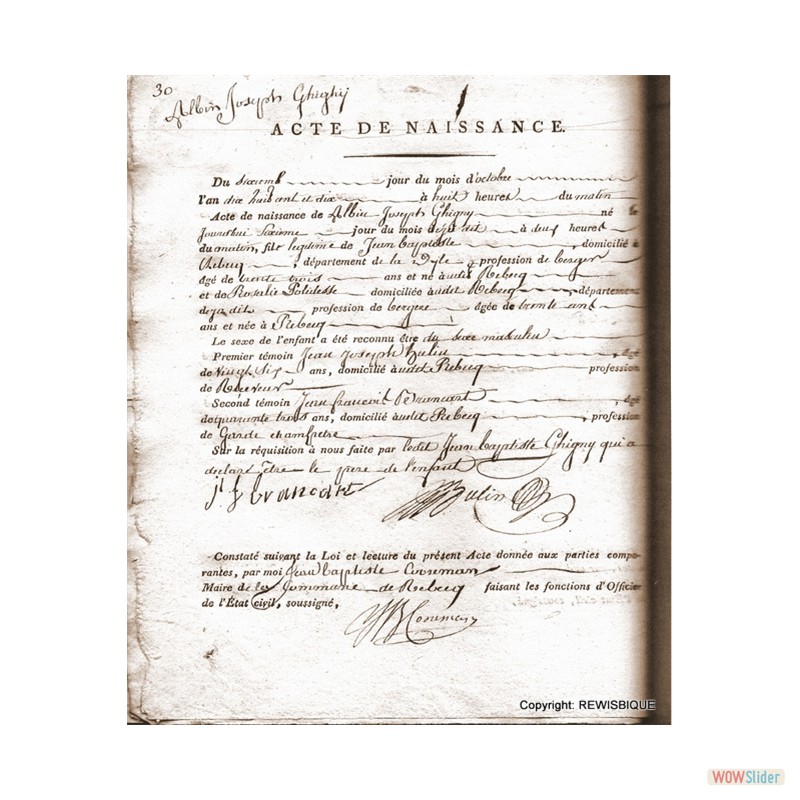 30
Albin Joseph Ghighij
ACTE DE NAISSANCE.
Du sixieme jour du mois d'octobre
l'an dix huit cent et dix à huit heures du matin
Acte de naissance de Albin Joseph Ghigny né le
jourd'hui sixieme jour du mois à deux heures
du matin, fils legitime de Jean baptiste, domicilié à
Rebecq, département de la Dyle, profession de berger
âgé de trente trois ans et né audit Rebecq
et de Rosalie domiciliée audit Rebecq, département
deja dit profession de bergere âgée de trente ans
ans et née à Rebecq
Le sexe de l'enfant a été reconnu être du sexe masculin
Premier témoin Jean Joseph Hulin, âgé
de vingt six ans, domicilié audit Rebecq profession
de Receveur
Second témoin Jean francois Brancart, âgé
de quarante trois ans, domicilié audit Rebecq, profession
de Garde champetre
Sur la réquisition à nous faite par ledit Jean baptiste Ghigny qui a
declaré être le pere de l'enfant
j f brancart Hulin
Constaté suivant la Loi et lecture du présent Acte donnée aux parties compa-
rantes, par moi Jean baptiste Cooreman
Maire de la Commune de Rebecq faisant les fonctions d'Officier
de l'État civil, soussigné,
JB Cooreman
Copyright: REWISBIQUE
WOWSlider